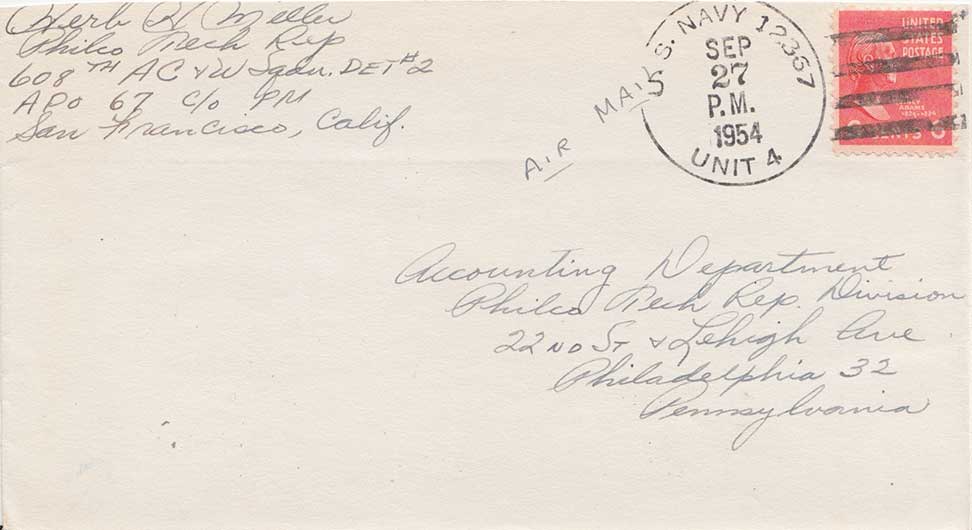 Herb H Miller
Philco Tech Rep
608TH AC & W Sqdn. DET #2
APO 67 c/o PM
San Francisco, Calif.
AIR MAIL
U. S. NAVY 12867
SEP
27
P.M.
1954
UNIT 4
UNITED
STATES
POSTAGE
ADAMS
6 CENTS 6
Accounting Department
Philco Tech Rep. Division
22ND ST & Lehigh Ave
Philadelphia 32
Pennsylvania